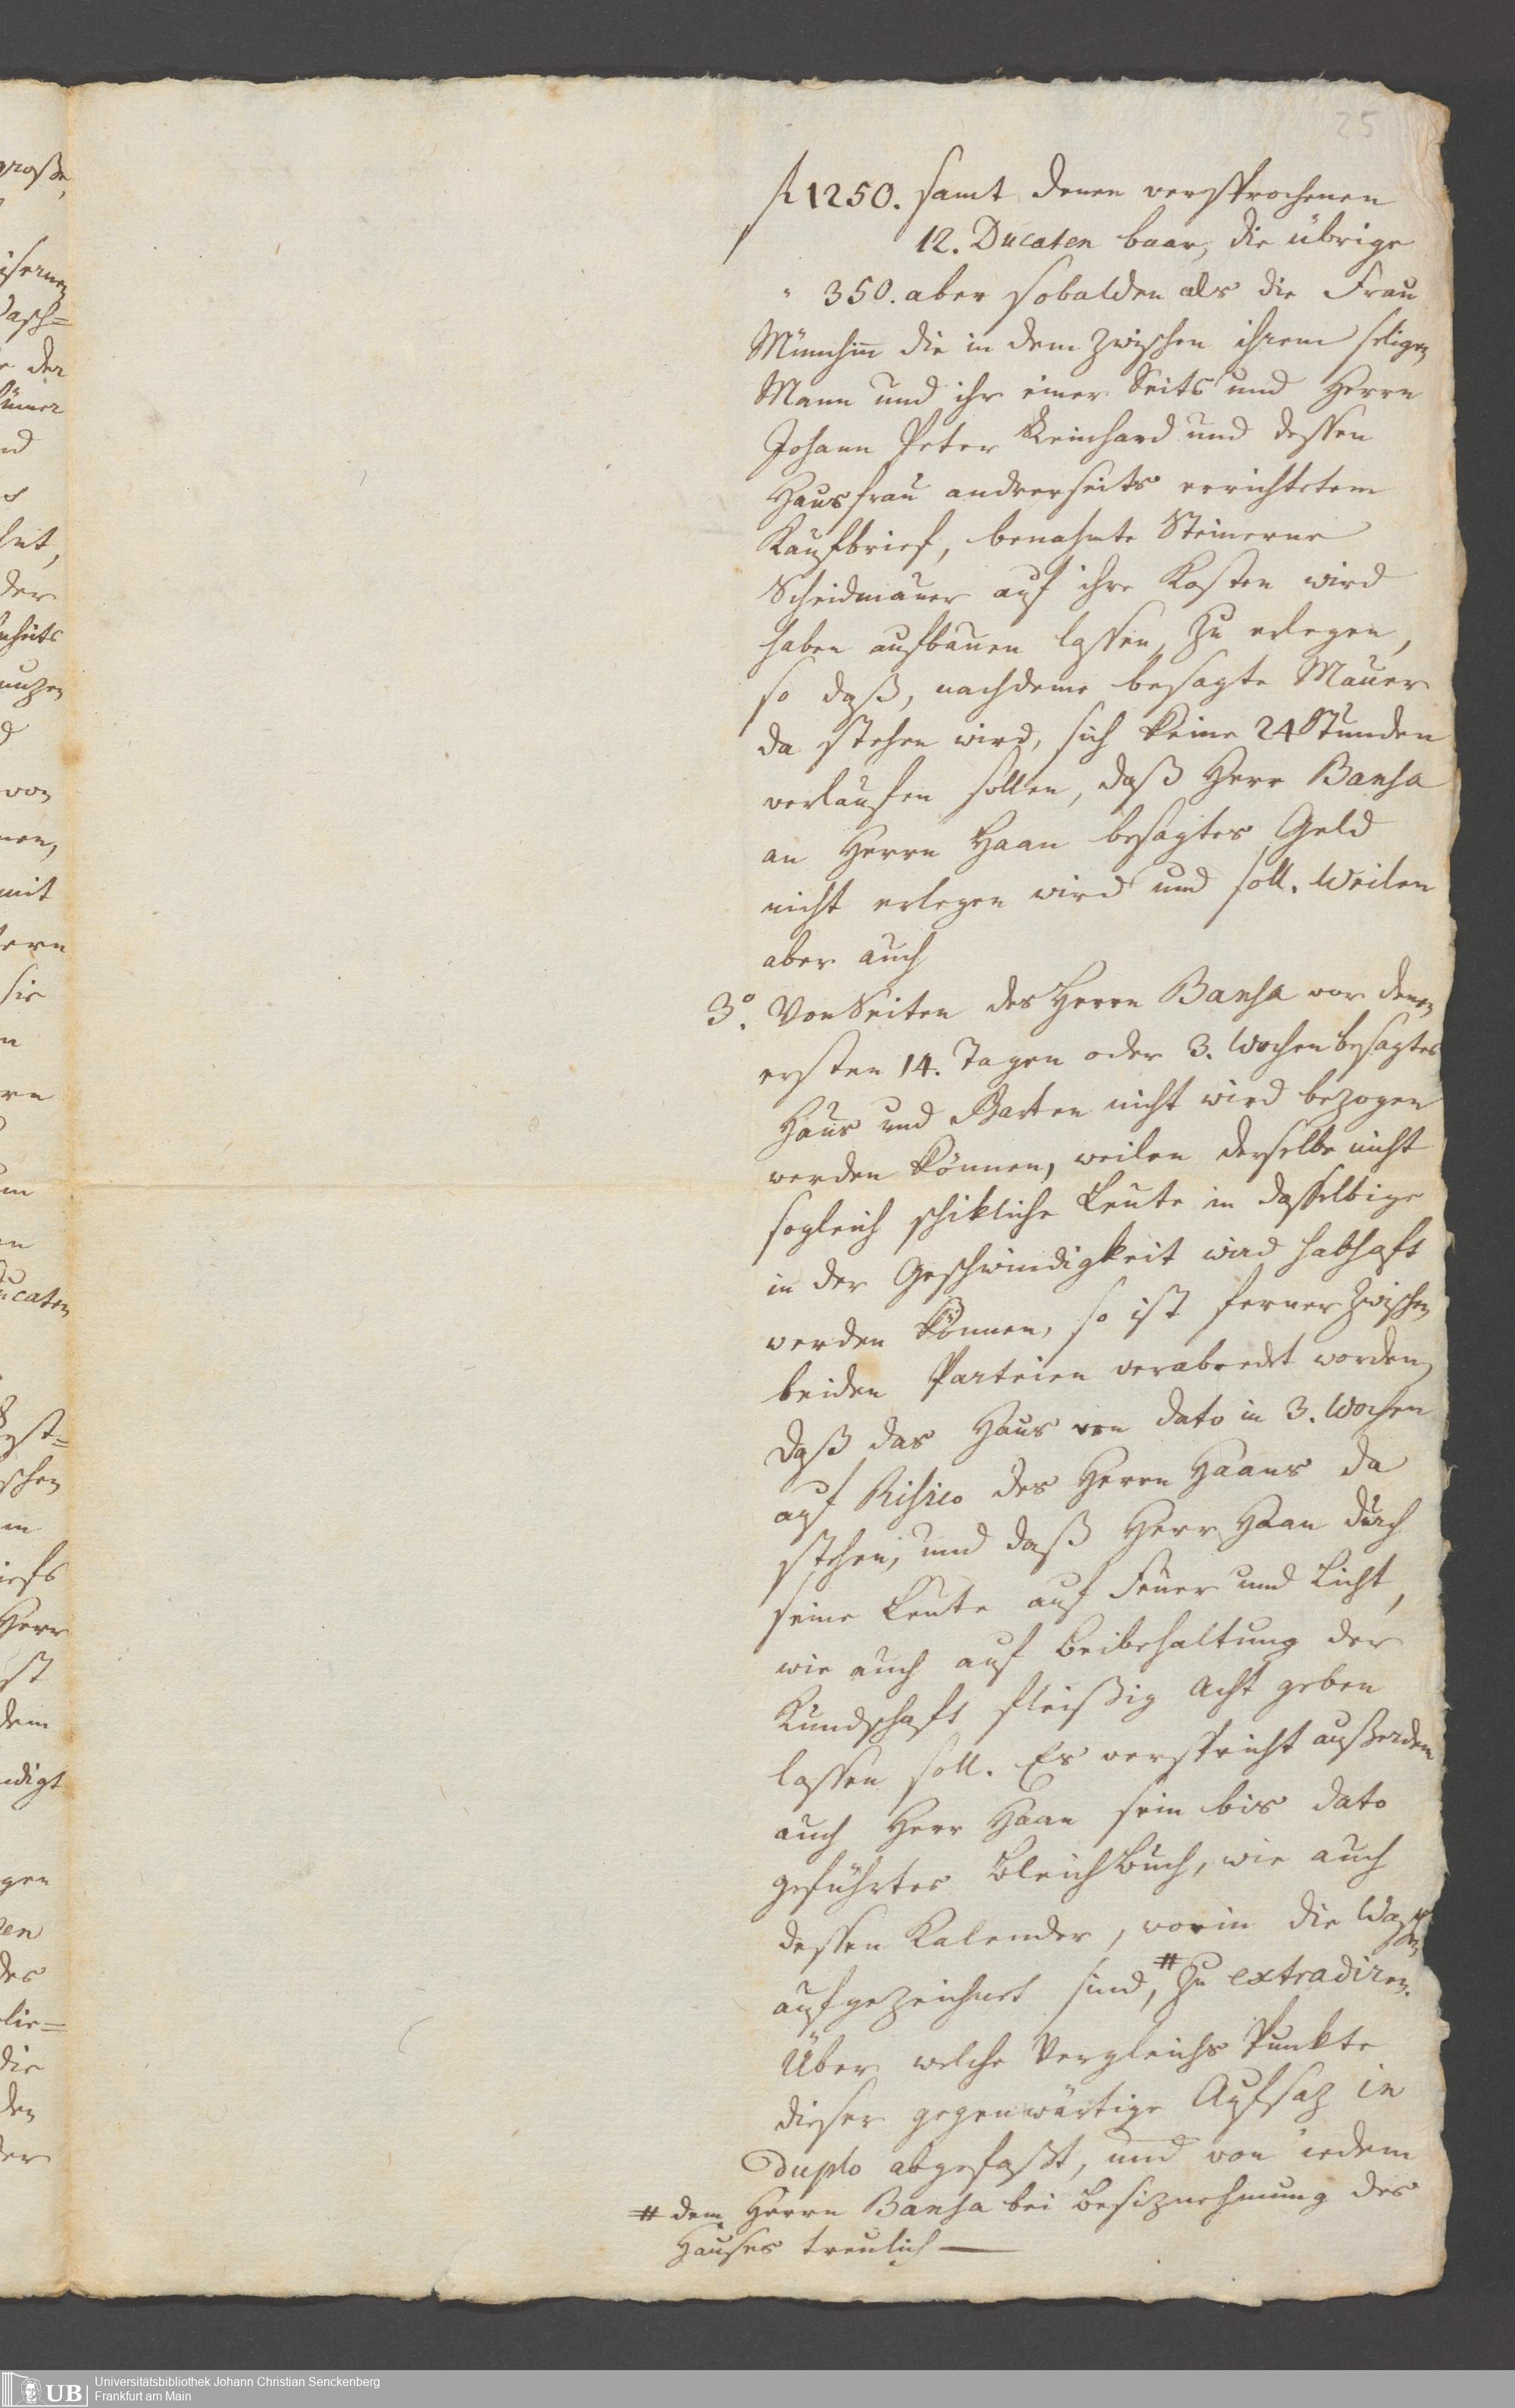 25
fl 1250. samt denen versprochenen
12. Ducaten baar, die übrige
" 350. aber sobalden als die Frau
Münchin die in dem zwischen ihrem seligen
Mann und ihr einer Seits und Herrn
Johann Peter Reinhard und dessen
Hausfrau andrerseits errichtetem
Kaufbrief, benahmte Steinerne
Scheidmauer auf ihre Kosten wird
haben aufbauen lassen, zu erlegen,
so daß, nachdeme besagte Mauer
da stehen wird, sich keine 24 Stunden
verlaufen sollen, daß Herr Bansa
an Herrn Haan besagtes Geld
nicht erlegen wird und soll. Weilen
aber auch
3º. Von Seiten des Herrn Bansa vor denen
ersten 14. Tagen oder 3. Wochen besagtes
Haus und Garten nicht wird bezogen
werden können, weilen derselbe nicht
sogleich schikliche Leute in dasselbige
in der Geschwindigkeit wird habhaft
werden können, so ist ferner zwischen
beiden Parteien verabredt worden,
daß das Haus von dato in 3. Wochen
auf Risico des Herrn Haans da
stehen, und daß Herr Haan durch
seine Leute auf Feuer und Licht,
wie auch auf Beibehaltung der
Kundschaft fleißig Acht geben
lassen soll. Es verspricht außerdem
auch Herr Haan sein bis dato
geführtes Bleichbuch, wie auch
dessen Kalender, worin die Waschen
aufgezeichnet sind, # zu extradiren.
Über welche Vergleichs Punkte
dieser gegenwärtige Aufsaz in
duplo abgefaßt, und von iedem
# dem Herrn Bansa bei Besiznehmung des
Hauses treulich —
große,
der
von
mit
sie
Ducaten
Herr
dem
des
die
den
UB
Universitätsbibliothek Johann Christian Senckenberg
Frankfurt am Main